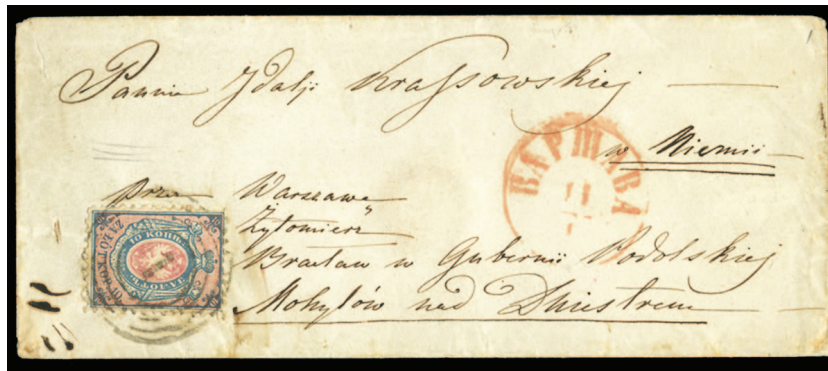 Pannie Idalji Krassowskiej
w Niemii
prze Warszawe
Żytomierz
Bracław w Gubernii Podolskiej
Mohylów nad Dniestrem
ВАРШАВА
11
10 КОПѢЕКЪ
ЗА ЛОТЪ